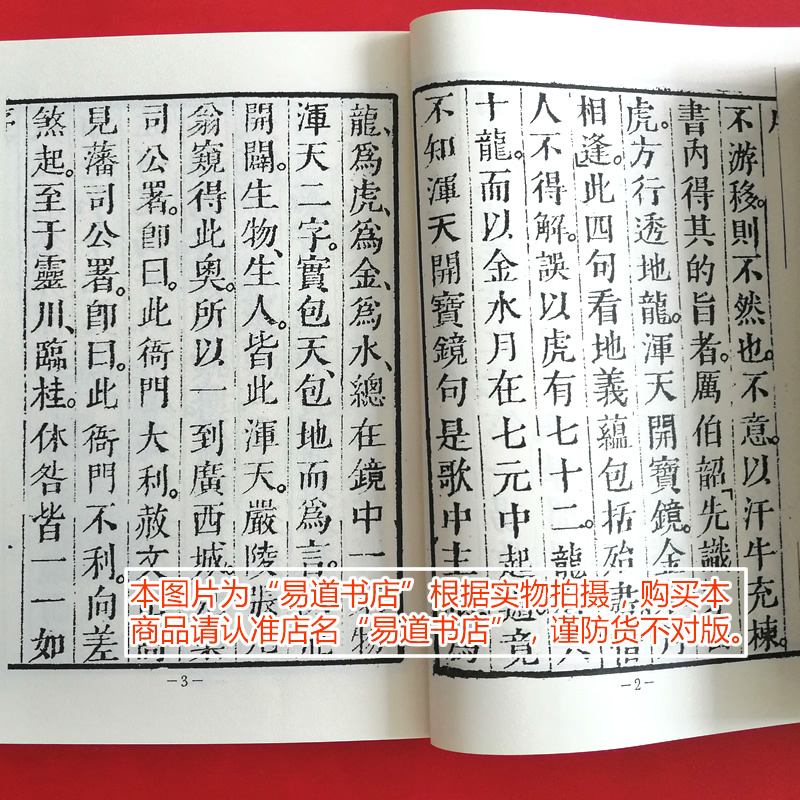 不游移。則不然也。不意。以汗牛充棟。
書內得其的旨者。厲伯韶「先識
虎。方行透地龍。渾天開寶鏡。金月
相逢。」此四句看地義蘊包括殆
人不得解。誤以虎有七十二。龍六
十龍。而以金水月在七元中起竟
不知渾天開寶鏡句是歌中主為
—2—
龍、為虎、為金、為水、總在鏡中一物
渾天二字。實包天、包地而為言。
開闢。生物、生人。皆此渾天。嚴陵張
翁窺得此奧。所以一到廣西城。
司公署。卽曰。此衙門大利。赦文
見藩司公署。卽曰。此衙門不利。向差
煞起。至于靈川、臨桂。休咎皆一一如
—3—
本图片为“易道书店”根据实物拍摄，购买本
商品请认准店名“易道书店”，谨防货不对版。